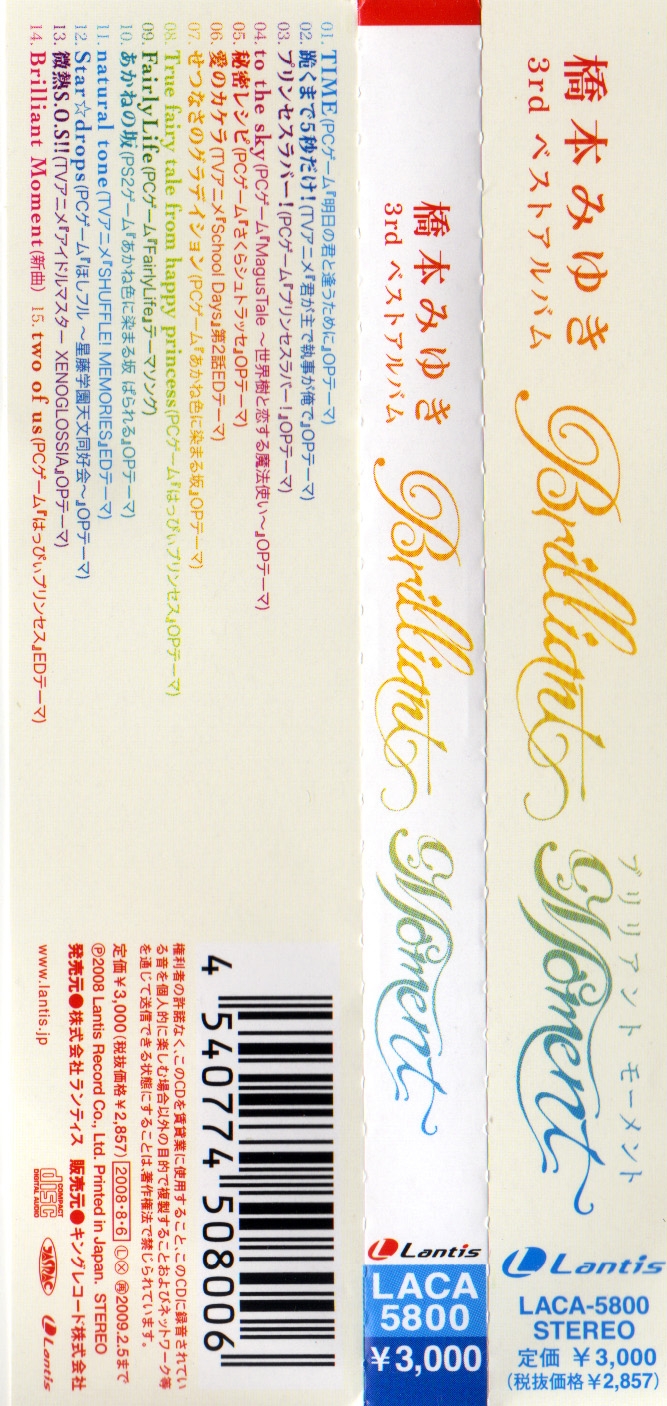 橋本みゆき
3rd ベストアルバム
Brilliant Moment
ブリリアント モーメント
Lantis
LACA-5800
STEREO
定価 ¥3,000
(税抜価格¥2,857)
橋本みゆき
3rd ベストアルバム
Brilliant Moment
Lantis
LACA
5800
¥3,000
01. TIME(PCゲーム『明日の君と逢うために』OPテーマ)
02. 跪くまで5秒だけ!(TVアニメ『君が主で執事が俺で』OPテーマ)
03. プリンセスラバー!(PCゲーム『プリンセスラバー!』OPテーマ)
04. to the sky(PCゲーム『MagusTale ～世界樹と恋する魔法使い～』OPテーマ)
05. 秘密レシピ(PCゲーム『さくらシュトラッセ』OPテーマ)
06. 愛のカケラ(TVアニメ『School Days』第2話EDテーマ)
07. せつなさのグラデイション(PCゲーム『あかね色に染まる坂』OPテーマ)
08. True fairy tale from happy princess(PCゲーム『はっぴぃプリンセス』OPテーマ)
09. FairlyLife(PCゲーム『FairlyLife』テーマソング)
10. あかねの坂(PS2ゲーム『あかね色に染まる坂 ぱられる』OPテーマ)
11. natural tone(TVアニメ『SHUFFLE! MEMORIES』EDテーマ)
12. Star☆drops(PCゲーム『ほしフル ～星藤学園天文同好会～』OPテーマ)
13. 微熱S.O.S!!(TVアニメ『アイドルマスター XENOGLOSSIA』OPテーマ)
14. Brilliant Moment(新曲) 15. two of us(PCゲーム『はっぴぃプリンセス』EDテーマ)
4 540774 508006
権利者の許諾なく、このCDを賃貸業に使用すること、このCDに録音されてい
る音を個人的に楽しむ場合以外の目的で複製することおよびネットワーク等
を通じて送信できる状態にすることは、著作権法で禁じられています。
定価¥3,000(税抜価格¥2,857) 2008・8・6 Ⓛ Ⓧ ㊞2009.2.5まで
Ⓟ2008 Lantis Record Co., Ltd. Printed in Japan. STEREO
発売元●株式会社ランティス 販売元●キングレコード株式会社
www.lantis.jp
COMPACT
disc
DIGITAL AUDIO
JASRAC
Lantis